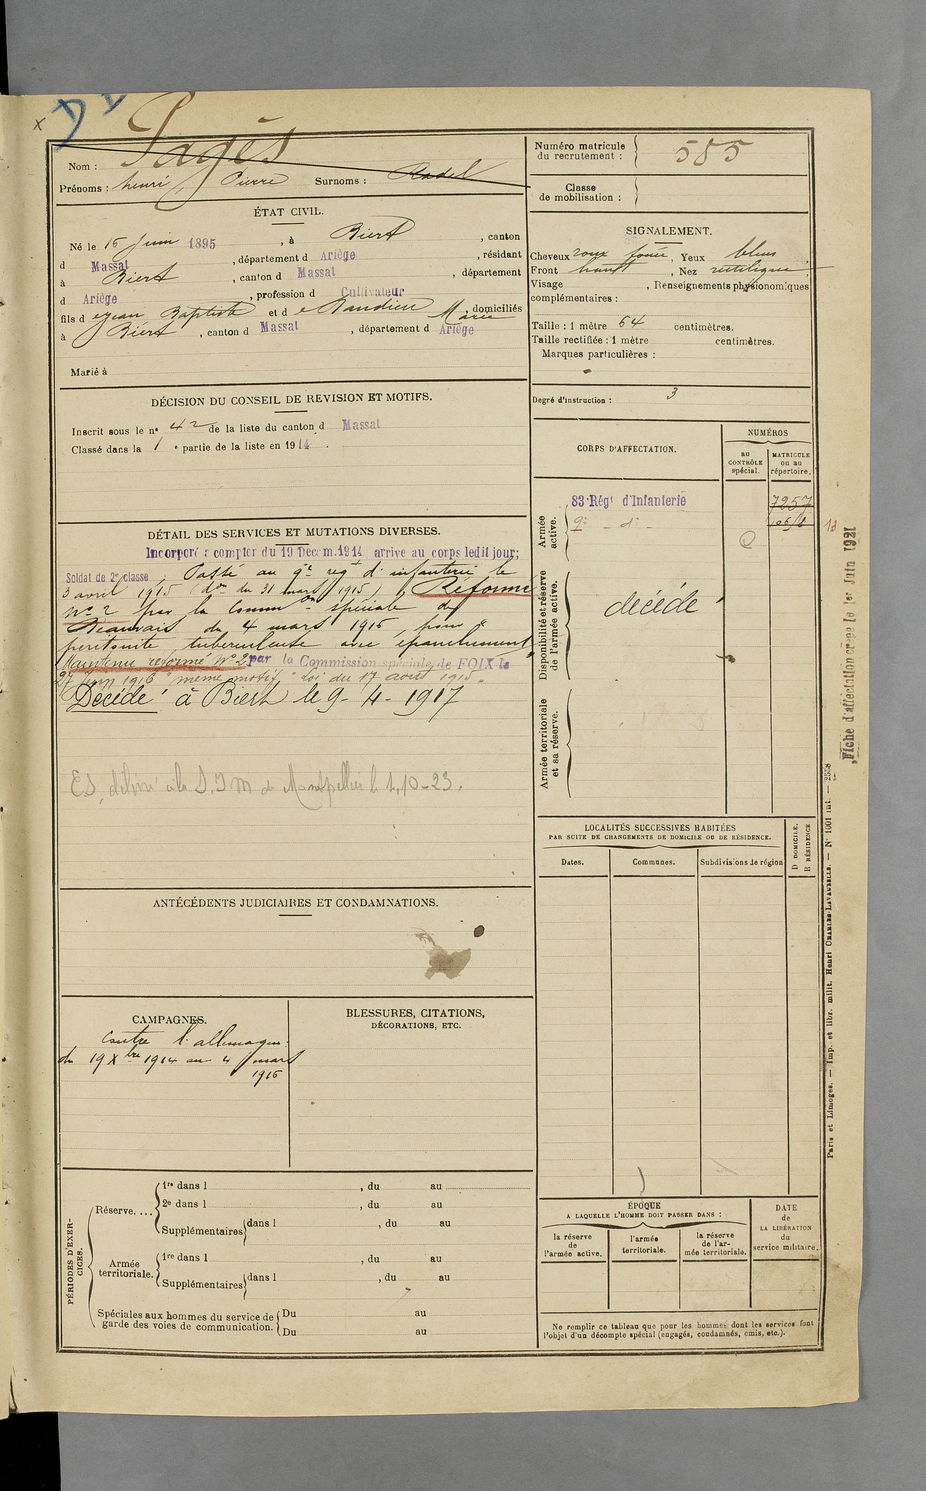 Pagès
Nom :
Prénoms : henri, Pierre Surnoms : Radel
Numéro matricule
du recrutement : 585
Classe
de mobilisation :
ÉTAT CIVIL.
Né le 15 Juin 1895, à Biert, canton
d Massat, département d Ariège, résidant
à Biert, canton d Massat, département
d Ariège, profession d Cultivateur
fils d e Jean Baptiste et d e Marie, domiciliés
à Biert, canton d Massat, département d Ariège
Marié à
SIGNALEMENT.
Cheveux roux foncé, Yeux bleus
Front haut, Nez rectiligne
Visage , Renseignements physionomiques
complémentaires :
Taille : 1 mètre 64 centimètres.
Taille rectifiée : 1 mètre centimètres.
Marques particulières :
Degré d'instruction : 3
DÉCISION DU CONSEIL DE REVISION ET MOTIFS.
Inscrit sous le n° 42 de la liste du canton d Massat
Classé dans la 1e partie de la liste en 1914.
DÉTAIL DES SERVICES ET MUTATIONS DIVERSES.
Incorporé à compter du 19 Décem. 1914 arrivé au corps ledit jour;
Soldat de 2e classe, Passé au 9e regt d'infanterie le
3 avril 1915 (don du 31 mars 1915), Réformé
N° 2 par la Common spéciale de
Beauvais du 4 mars 1916, pour "
peritonite tuberculeuse avec épanchement"
Maintenu réformé N° 2 par la Commission spéciale de FOIX le
27 Juin 1916 "même motif" Loi du 17 août 1915.
Décédé à Biert le 9-4-1917
ES délivré à la S.I.M de Montpellier le 1.10-23.
CORPS D'AFFECTATION.
NUMÉROS
au
CONTRÔLE
spécial.
MATRICULE
ou au
répertoire.
Armée
active.
83e Régt d'Infanterie 7257
9e - d° -
Disponibilité et réserve
de l'armée active.
décédé
Armée territoriale
et sa réserve.
Fiche d'affectation créée le 1er Juin 1921
LOCALITÉS SUCCESSIVES HABITÉES
PAR SUITE DE CHANGEMENTS DE DOMICILE OU DE RÉSIDENCE.
Dates. Communes. Subdivisions de région
D DOMICILE.
R RÉSIDENCE
ANTÉCÉDENTS JUDICIAIRES ET CONDAMNATIONS.
CAMPAGNES.
Contre l'allemagne
du 19 Xbre 1914 au 4 mars
1916
BLESSURES, CITATIONS,
DÉCORATIONS, ETC.
PÉRIODES D'EXER-
CICES.
Réserve....
1re dans l , du au
2e dans l , du au
Supplémentaires dans l , du au
Armée
territoriale.
1re dans l , du au
Supplémentaires dans l , du au
Spéciales aux hommes du service de
garde des voies de communication.
Du au
Du au
ÉPOQUE
A LAQUELLE L'HOMME DOIT PASSER DANS :
la réserve
de
l'armée active.
l'armée
territoriale.
la réserve
de l'ar-
mée territoriale.
DATE
de
LA LIBÉRATION
du
service militaire.
Ne remplir ce tableau que pour les hommes dont les services font
l'objet d'un décompte spécial (engagés, condamnés, omis, etc.).
Paris et Limoges. — Imp. et libr. milit. Henri CHARLES-LAVAUZELLE. — N° 1001 int. — 2538